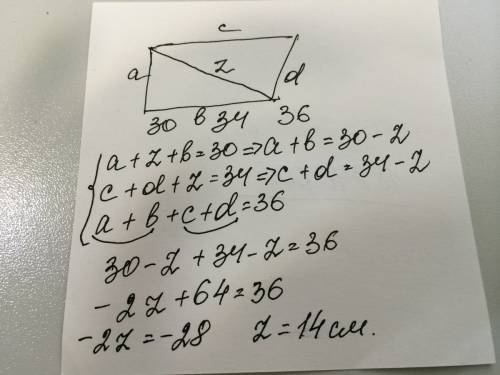 c
a z d
30 в 34 36
a + z + в = 30 => a + в = 30 - z
c + d + z = 34 => c + d = 34 - z
a + в + c + d = 36
30 - z + 34 - z = 36
- 2z + 64 = 36
- 2z = -28 z = 14 см.